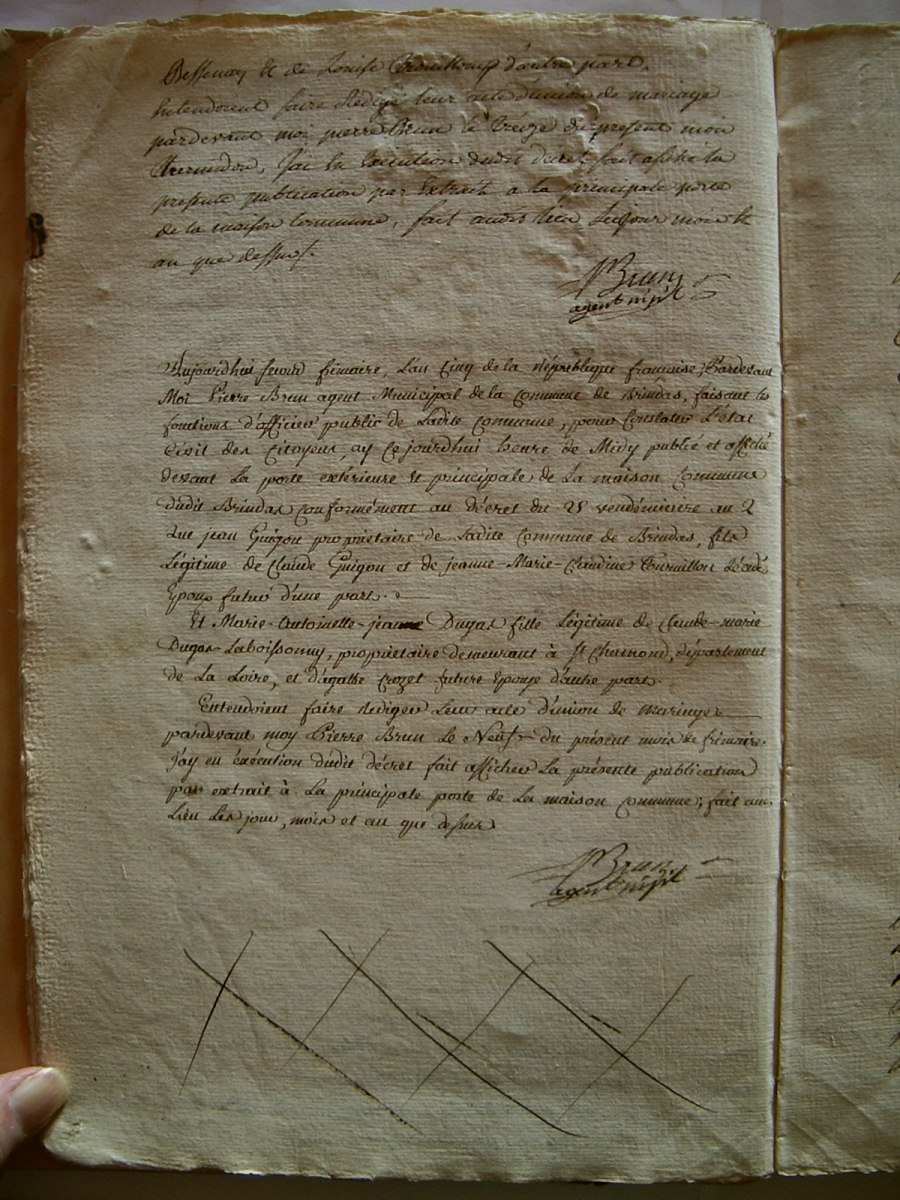 et de Louise d'autre part.
Entendoient faire Rédigé leur acte d'union de mariage
pardevant moi pierre Brun le treize du présent mois
J'ai En Exécution dudit décret fait afiché la
présente publication par Extrait a la principale porte
de la maison Commune, fait audit lieu Lesjour mois et
an que dessus.
PBrun
agent mpl
Aujourdhui frimaire, L'an Cinq de la République française, Pardevant
Moi Pierre Brun agent Municipal de la Commune de Brindas, faisant les
fonctions d'officier public de Ladite Commune, pour Constater L'état
Civil des Citoyens, ay Cejourdhui heure de Midy publié et affiché
devant La porte extérieure et principale de La maison Commune
dudit Brindas Conformément au décret du 25 vendémiere an 2
Que jean Guigon propriétaire de Ladite Commune de Brindas, fils
Légitime de Claude Guigon et de jeanne-Marie-Claudine Décédé,
Epoux futur d'une part.
Et Marie-Antoinette-jeanne Dugas fille Légitime de Claude-marie
Dugas-Laboissonny, propriétaire demeurant à St Chamond, département
de La Loire, et d'agathe Crozet future Epouse d'autre part.
Entendoient faire rediger Leur acte D'union de Mariage
pardevant moy Pierre Brun Le Neuf du présent mois de frimaire
J'ay en éxécution dudit décret fait afficher La présente publication
par extrait à La principale porte de La maison Commune, fait au
Lieu Les jour, mois et an que dessus.
PBrun
agent mpl